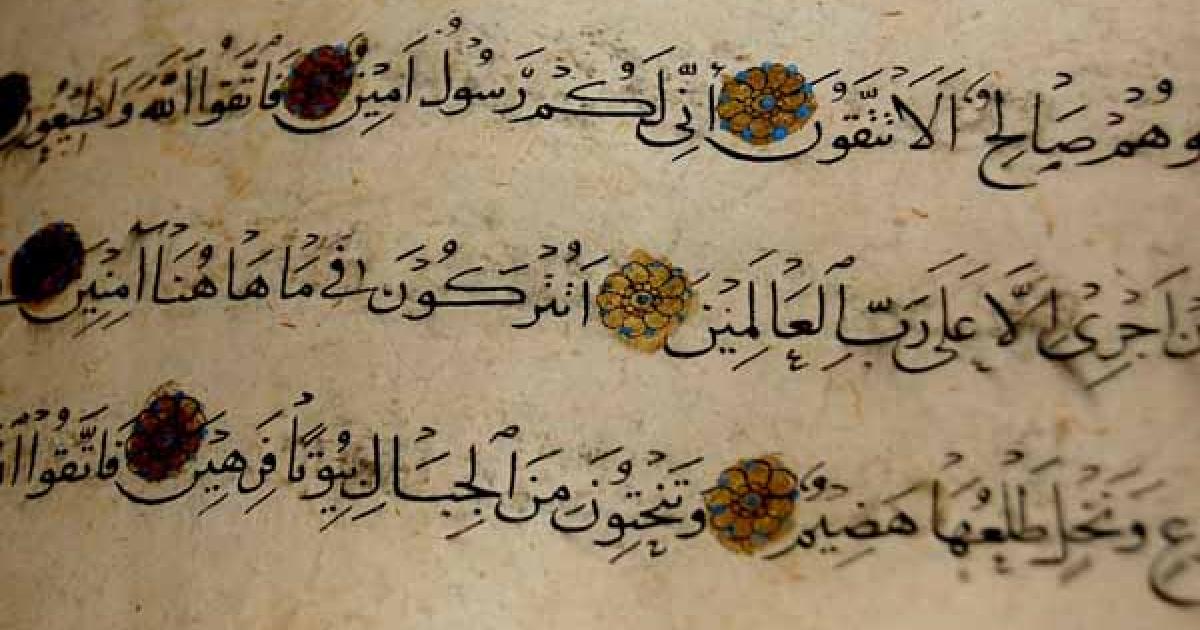 وهُمْ صَالِحٌ اَلَا تَتَّقُونَ اِنِّي لَكُمْ رَسُولٌ اَمِينٌ فَاتَّقُوا اللّٰهَ وَاَطِيعُونِ
اَجْرِيَ اِلَّا عَلَى رَبِّ الْعَالَمِينَ اَتُتْرَكُونَ فِي مَا هَاهُنَا اٰمِنِينَ
ع وَنَخْلٍ طَلْعُهَا هَضِيمٌ وَتَنْحِتُونَ مِنَ الْجِبَالِ بُيُوتًا فَرِهِينَ فَاتَّقُوا